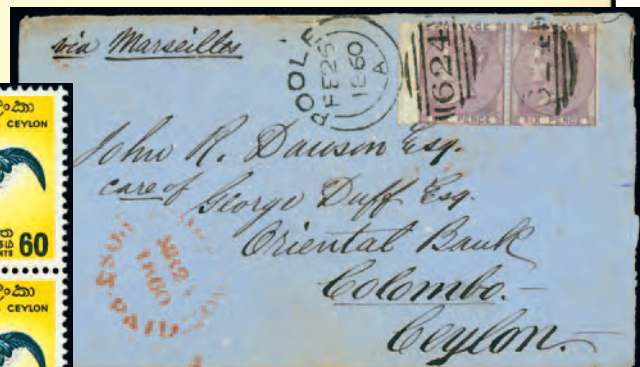 via Marseilles
POOLE
FE 25
1860
A
624
POSTAGE
PENCE
SIX PENCE
John R. Dawson Esq.
care of George Duff Esq.
Oriental Bank
Colombo.-
Ceylon.-
1860
PAID
CEYLON
60
CEYLON